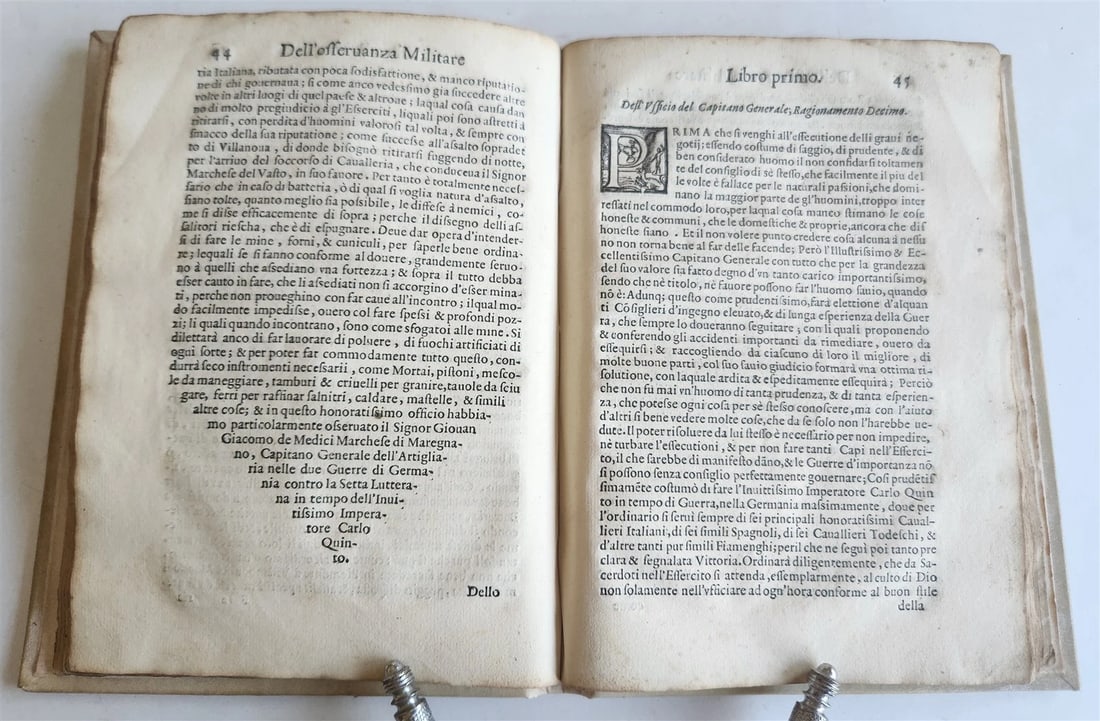 44
Dell'osseruanza Militare
ria Italiana, ributata con poca sodisfattione, & manco riputatio-
ne di chi gouernaua; si come anco vedessimo gia succedere altre
volte in altri luogi di quel paese & altroue; laqual cosa causa dan
no di molto pregiudicio à gl'Esserciti, liquali poi sono astretti à
ritirarsi, con perdita d'huomini valorosi tal volta, & sempre con
smacco della sua riputatione; come successe all'assalto sopradet
to di Villanoua, di donde bisognò ritirarsi fuggendo di notte,
per l'arriuo del soccorso di Caualleria, che conduceua il Signor
Marchese del Vasto, in suo fauore. Per tanto è totalmente neces-
sario che in caso di batteria, ò di qual si voglia natura d'assalto,
siano tolte, quanto meglio sia possibile, le diffese à nemici, co-
me si disse efficacemente di sopra; perche il dissegno delli as-
salitori riescha, che è di espugnare. Deue dar opera d'intender-
si di fare le mine, forni, & cuniculi, per saperle bene ordina-
re; lequali se si fanno conforme al douere, grandemente seruo-
no à quelli che assediano vna fortezza; & sopra il tutto debba
esser cauto in fare, che li assediati non si accorgino d'esser mina-
ti, perche non proueghino con far caue all'incontro; ilqual mo-
do facilmente impedisse, ouero col fare spessi & profondi poz-
zi; li quali quando incontrano, sono come sfogatoi alle mine. Si
dilettarà anco di far lauorare di poluere, di fuochi artificiati di
ogni sorte; & per poter far commodamente tutto questo, con-
durrà seco instromenti necessarii, come Mortai, pistoni, mesco-
le da maneggiare, tamburi & criuelli per granire, tauole da sciu
gare, ferri per raffinar salnitri, caldare, mastelle, & simili
altre cose; & in questo honoratissimo officio habbia-
mo particolarmente osseruato il Signor Giouan
Giacomo de Medici Marchese di Maregna-
no, Capitano Generale dell'Artiglia-
ria nelle due Guerre di Germa-
nia contro la Setta Luttera-
na in tempo dell'Inui-
tissimo Impera-
tore Carlo
Quin-
to.
Dello
Libro primo.
45
Dell'Vfficio del Capitano Generale; Ragionamento Decimo.
PRIMA che si venghi all'essecutione delli graui ne-
gotij; essendo costume di saggio, di prudente, & di
ben considerato huomo il non confidarsi toltamen
te del consiglio di sè stesso, che facilmente il piu del
le volte è fallace per le naturali passioni, che domi-
nano la maggior parte de gl'huomini, troppo inter
ressati nel commodo loro, per laqual cosa manco stimano le cose
honeste & communi, che le domestiche & proprie, ancora che dis
honeste siano. Et il non volere punto credere cosa alcuna à nessu
no non torna bene al far delle facende; Però l'Illustrissimo & Ec-
cellentissimo Capitano Generale con tutto che per la grandezza
del suo valore sia fatto degno d'vn tanto carico importantissimo,
sendo che nè titolo, nè fauore possono far l'huomo sauio, quando
nō è: Adunq; questo come prudentissimo, farà elettione d'alquan
ti Cōsiglieri d'ingegno eleuato, & di lunga esperienza della Guer
ra, che sempre lo doueranno seguitare; con li quali proponendo
& conferendo gli accidenti importanti da rimediare, ouero da
essequirsi; & raccogliendo da ciascuno di loro il migliore, di
molte buone parti, col suo sauio giudicio formarà vna ottima ri-
solutione, con laquale ardita & espeditamente essequirà; Perciò
che non fu mai vn'huomo di tanta prudenza, & di tanta esperien-
za, che potesse ogni cosa per sè stesso conoscere, ma con l'aiuto
d'altri si bene vedere molte cose, che da se solo non l'harebbe ue-
dute. Il poter risoluere da lui stesso è necessario per non impedire,
nè turbare l'essecutioni, & per non fare tanti Capi nell'Esserci-
to, il che sarebbe di manifesto dāno, & le Guerre d'importanza nō
si possono senza consiglio perfettamente gouernare; Cosi prudētis
simamēte costumò di fare l'Inuittissimo Imperatore Carlo Quin
to in tempo di Guerra, nella Germania massimamente, doue per
l'ordinario si seruì sempre di sei principali honoratissimi Caual-
lieri Italiani, di sei simili Spagnoli, di sei Cauallieri Todeschi, &
d'altre tanti pur simili Fiamenghi; peril che ne seguì poi tanto pre
clara & segnalata Vittoria. Ordinarà diligentemente, che da Sa-
cerdoti nell'Essercito si attenda, essemplarmente, al culto di Dio
non solamente nell'vfficiare ad ogn'hora conforme al buon stile
della